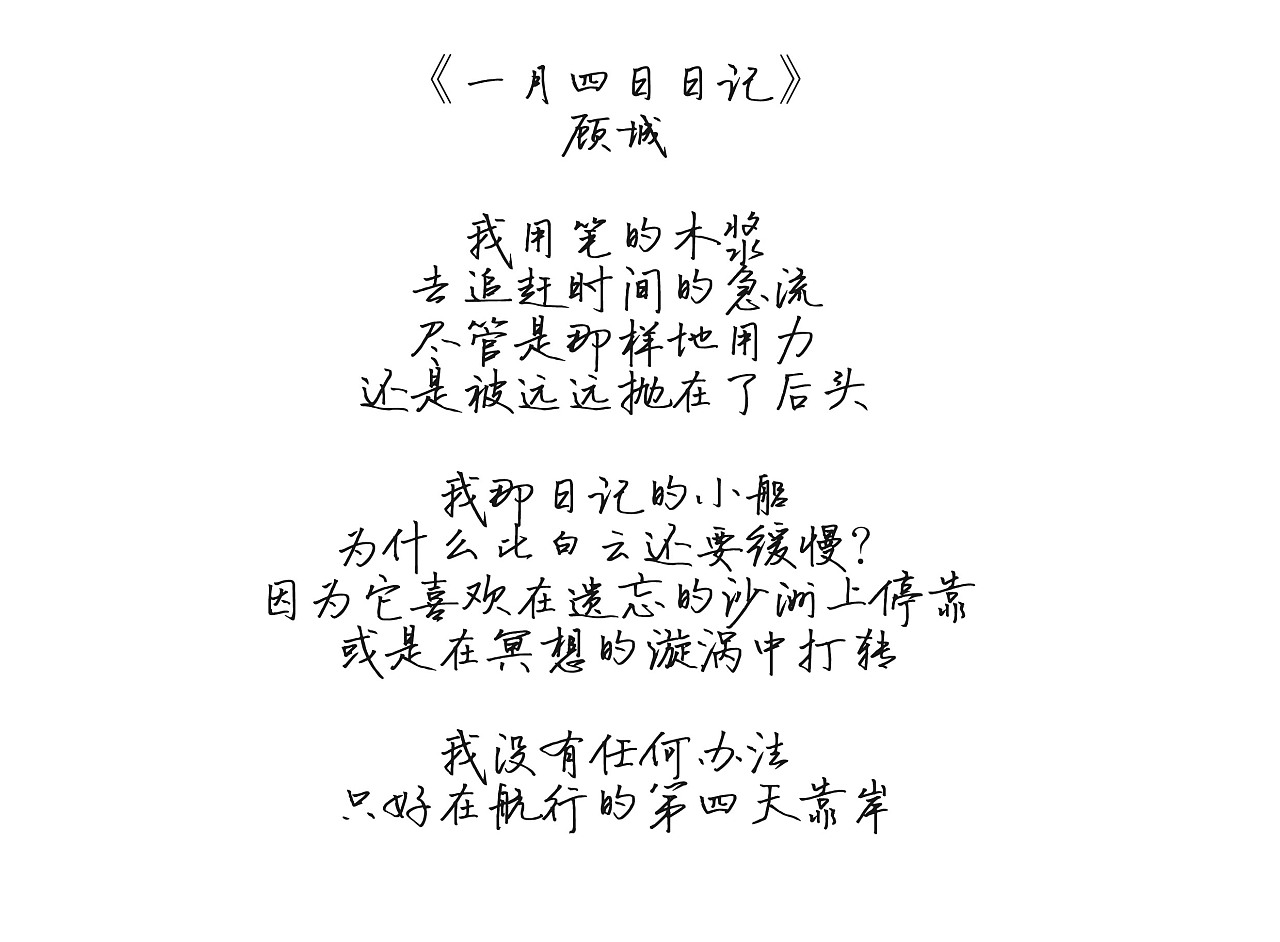 《一月四日日记》
顾城
我用笔的木浆
去追赶时间的急流
尽管是那样地用力
还是被远远抛在了后头
我那日记的小船
为什么比白云还要缓慢?
因为它喜欢在遗忘的沙洲上停靠
或是在冥想的漩涡中打转
我没有任何办法
只好在航行的第四天靠岸